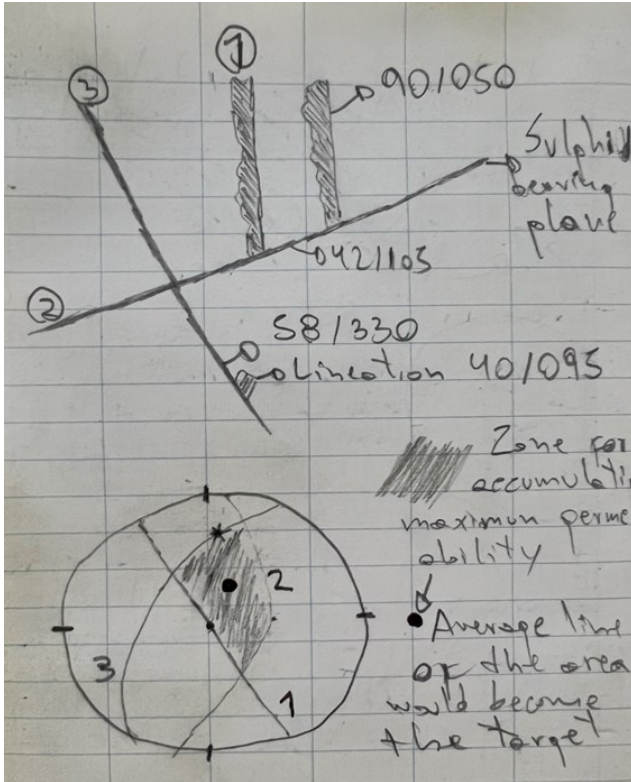 1
3
90/050
Sulphid
bearing
plane
042/105
2
58/330
Lineation 40/095
Zone for
accumulati
maximun perme
ability
2
3
1
Average line
of the area
would become
the target